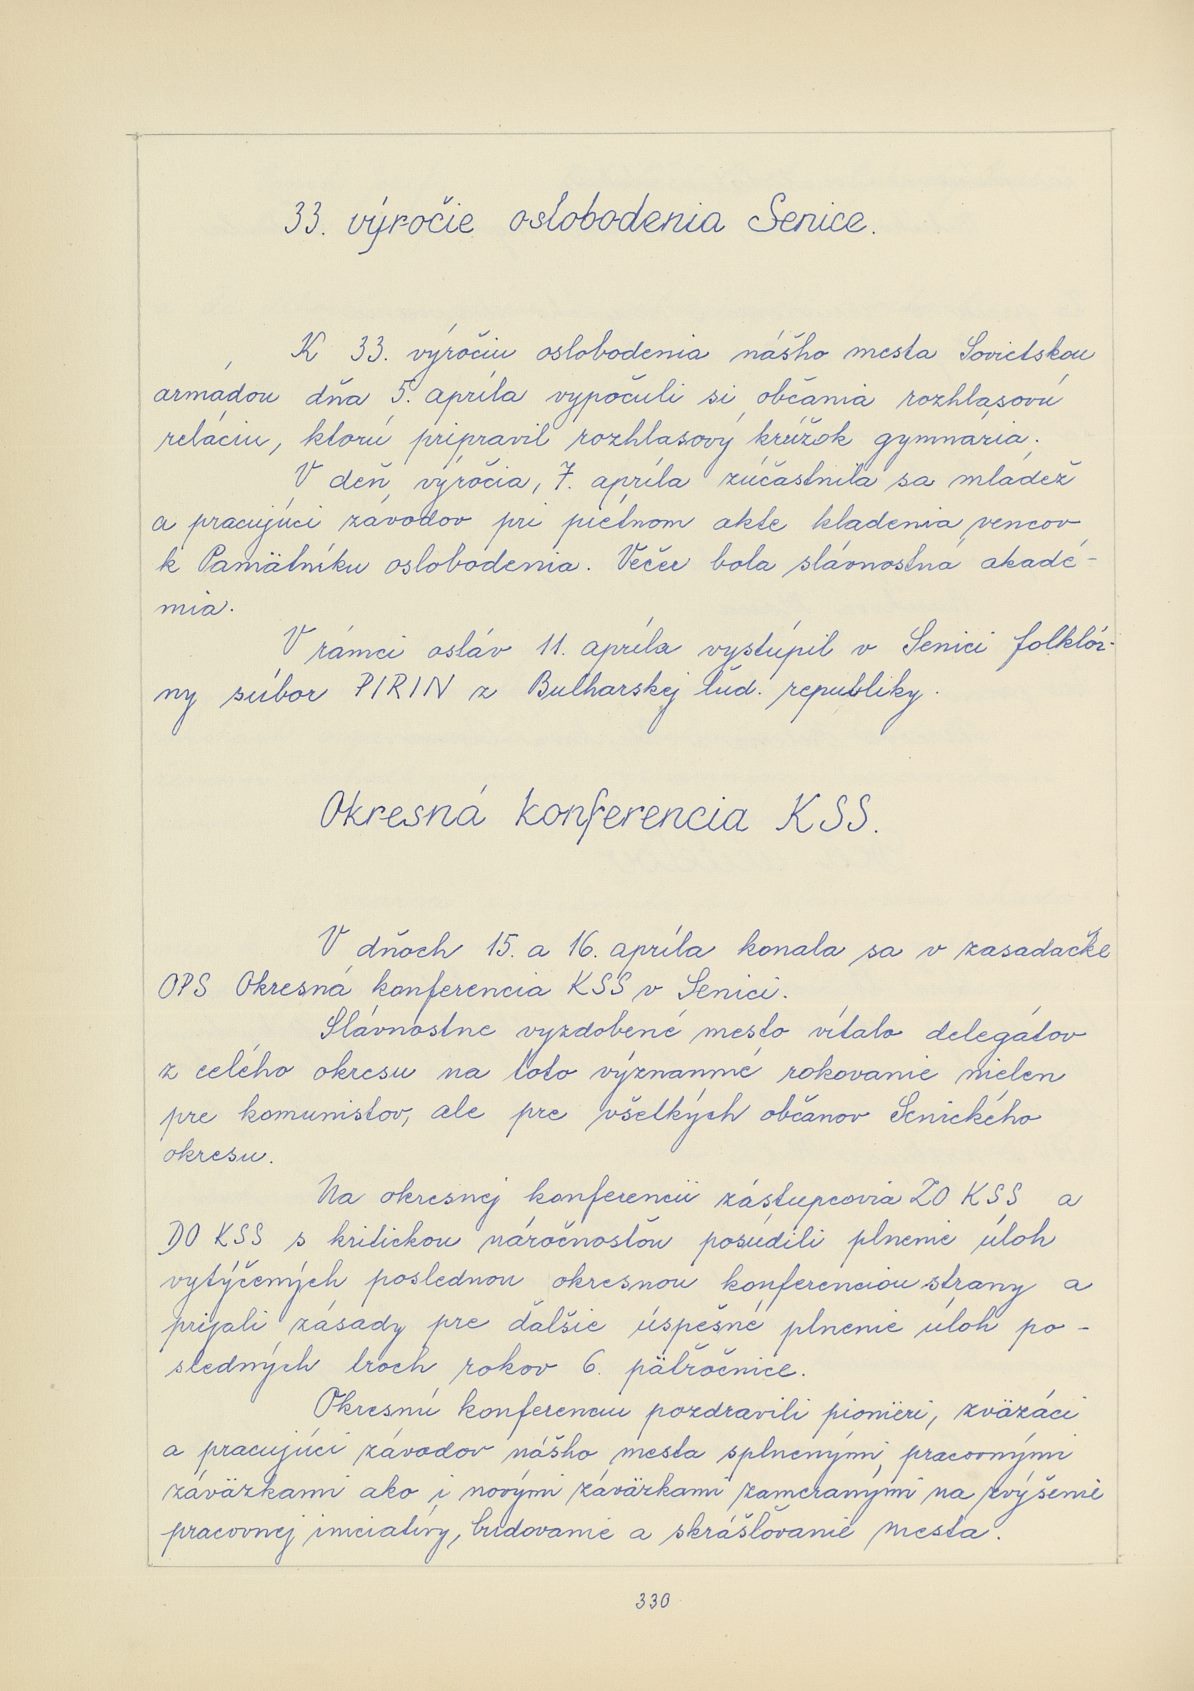 33. výročie oslobodenia Senice.
K 33. výročiu oslobodenia nášho mesta Sovietskou
armádou dňa 5. apríla vypočuli si občania rozhlasovú
reláciu, ktorú pripravil rozhlasový krúžok gymnázia.
V deň výročia, 7. apríla zúčastnila sa mládež
a pracujúci závodov pri pietnom akte kladenia vencov
k Pamätníku oslobodenia. Večer bola slávnostná akadé-
mia.
V rámci osláv 11. apríla vystúpil v Senici folklór-
ny súbor PIRIN z Bulharskej ľud. republiky.
Okresná konferencia KSS.
V dňoch 15. a 16. apríla konala sa v zasadačke
OPS Okresná konferencia KSS v Senici.
Slávnostne vyzdobené mesto vítalo delegátov
z celého okresu na toto významné rokovanie nielen
pre komunistov, ale pre všetkých občanov Senického
okresu.
Na okresnej konferencii zástupcovia ZO KSS a
DO KSS s kritickou náročnosťou posúdili plnenie úloh
vytýčených poslednou okresnou konferenciou strany a
prijali zásady pre ďalšie úspešné plnenie úloh po-
sledných troch rokov 6. päťročnice.
Okresnú konferenciu pozdravili pionieri, zväzáci
a pracujúci závodov nášho mesta splnenými, pracovnými
záväzkami ako i novými záväzkami zameranými na zvýšenie
pracovnej iniciatívy, budovanie a skrášľovanie mesta.
330